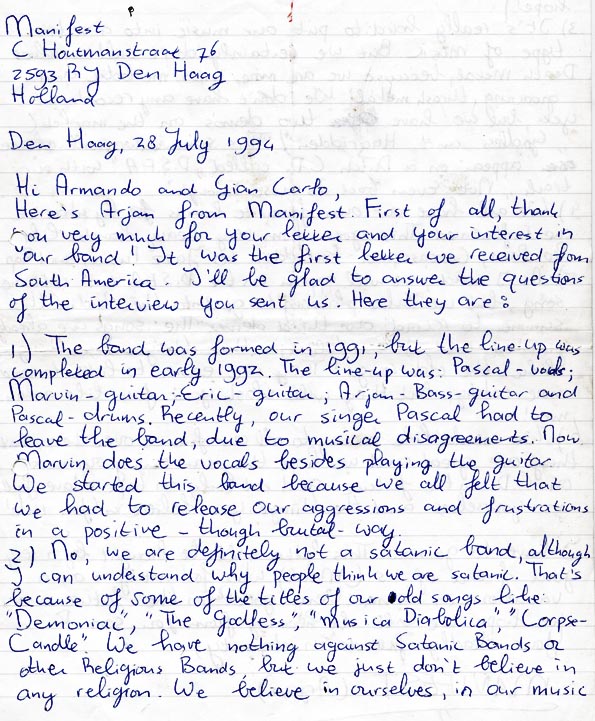 Manifest
C. Houtmanstraat 76
2593 RY Den Haag
Holland
Den Haag, 28 July 1994
Hi Armando and Gian Carlo,
Here's Arjan from Manifest. First of all, thank
you very much for your letter and your interest in
our band! It was the first letter we received from
South America. I'll be glad to answer the questions
of the interview you sent us. Here they are:
1) The band was formed in 1991, but the line-up was
completed in early 1992. The line-up was: Pascal - vocals;
Marvin - guitar; Eric - guitar; Arjan - Bass-guitar and
Pascal - drums. Recently, our singer Pascal had to
leave the band, due to musical disagreements. Now
Marvin does the vocals besides playing the guitar.
We started this band because we all felt that
we had to release our aggressions and frustrations
in a positive - though brutal - way.
2) No, we are definitely not a satanic band, although
I can understand why people think we are satanic. That's
because of some of the titles of our old songs like:
"Demoniac", "The Godless", "Musica Diabolica", "Corpse-
Candle". We have nothing against Satanic Bands or
other Religious Bands, but we just don't believe in
any religion. We believe in ourselves, in our music